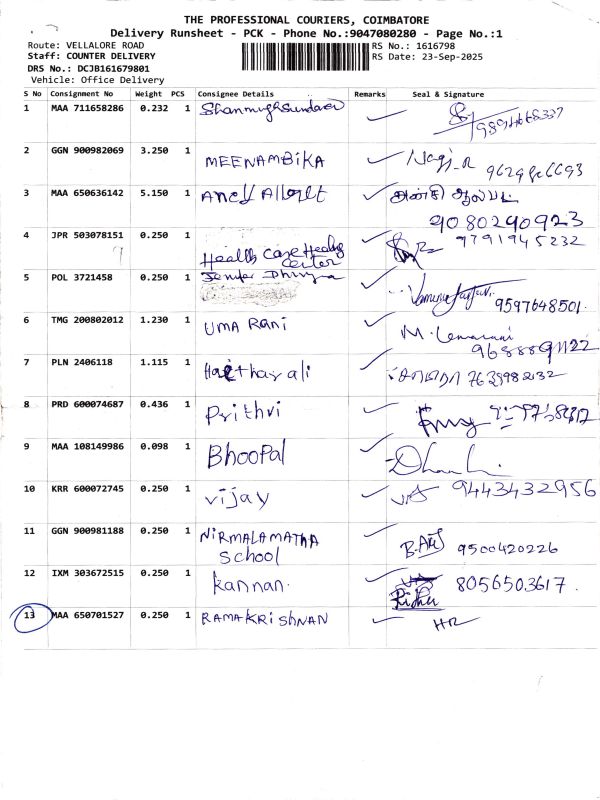 THE PROFESSIONAL COURIERS, COIMBATORE
Delivery Runsheet - PCK - Phone No.:9047080280 - Page No.:1
Route: VELLALORE ROAD RS No.: 1616798
Staff: COUNTER DELIVERY RS Date: 23-Sep-2025
DRS No.: DCJB161679801
Vehicle: Office Delivery
S No Consignment No Weight PCS Consignee Details Remarks Seal & Signature
1 MAA 711658286 0.232 1 Shanmughsundaram
2 GGN 900982069 3.250 1 MEENAMBIKA
3 MAA 650636142 5.150 1 Ancy Albert அன்சி ஆல்பட்
9080290923
4 JPR 503078151 0.250 1 Health Care Healing 9791945232
Center
5 POL 3721458 0.250 1 Jenifer 9597648501
6 TMG 200802012 1.230 1 UMA Rani
7 PLN 2406118 1.115 1
8 PRD 600074687 0.436 1 Prithvi
9 MAA 108149986 0.098 1 Bhoopal
10 KRR 600072745 0.250 1 vijay 9443432956
11 GGN 900981188 0.250 1 NIRMALAMATHA
School 9500420226
12 IXM 303672515 0.250 1 kannan. 8056503617.
13 MAA 650701527 0.250 1 RAMAKRISHNAN HR